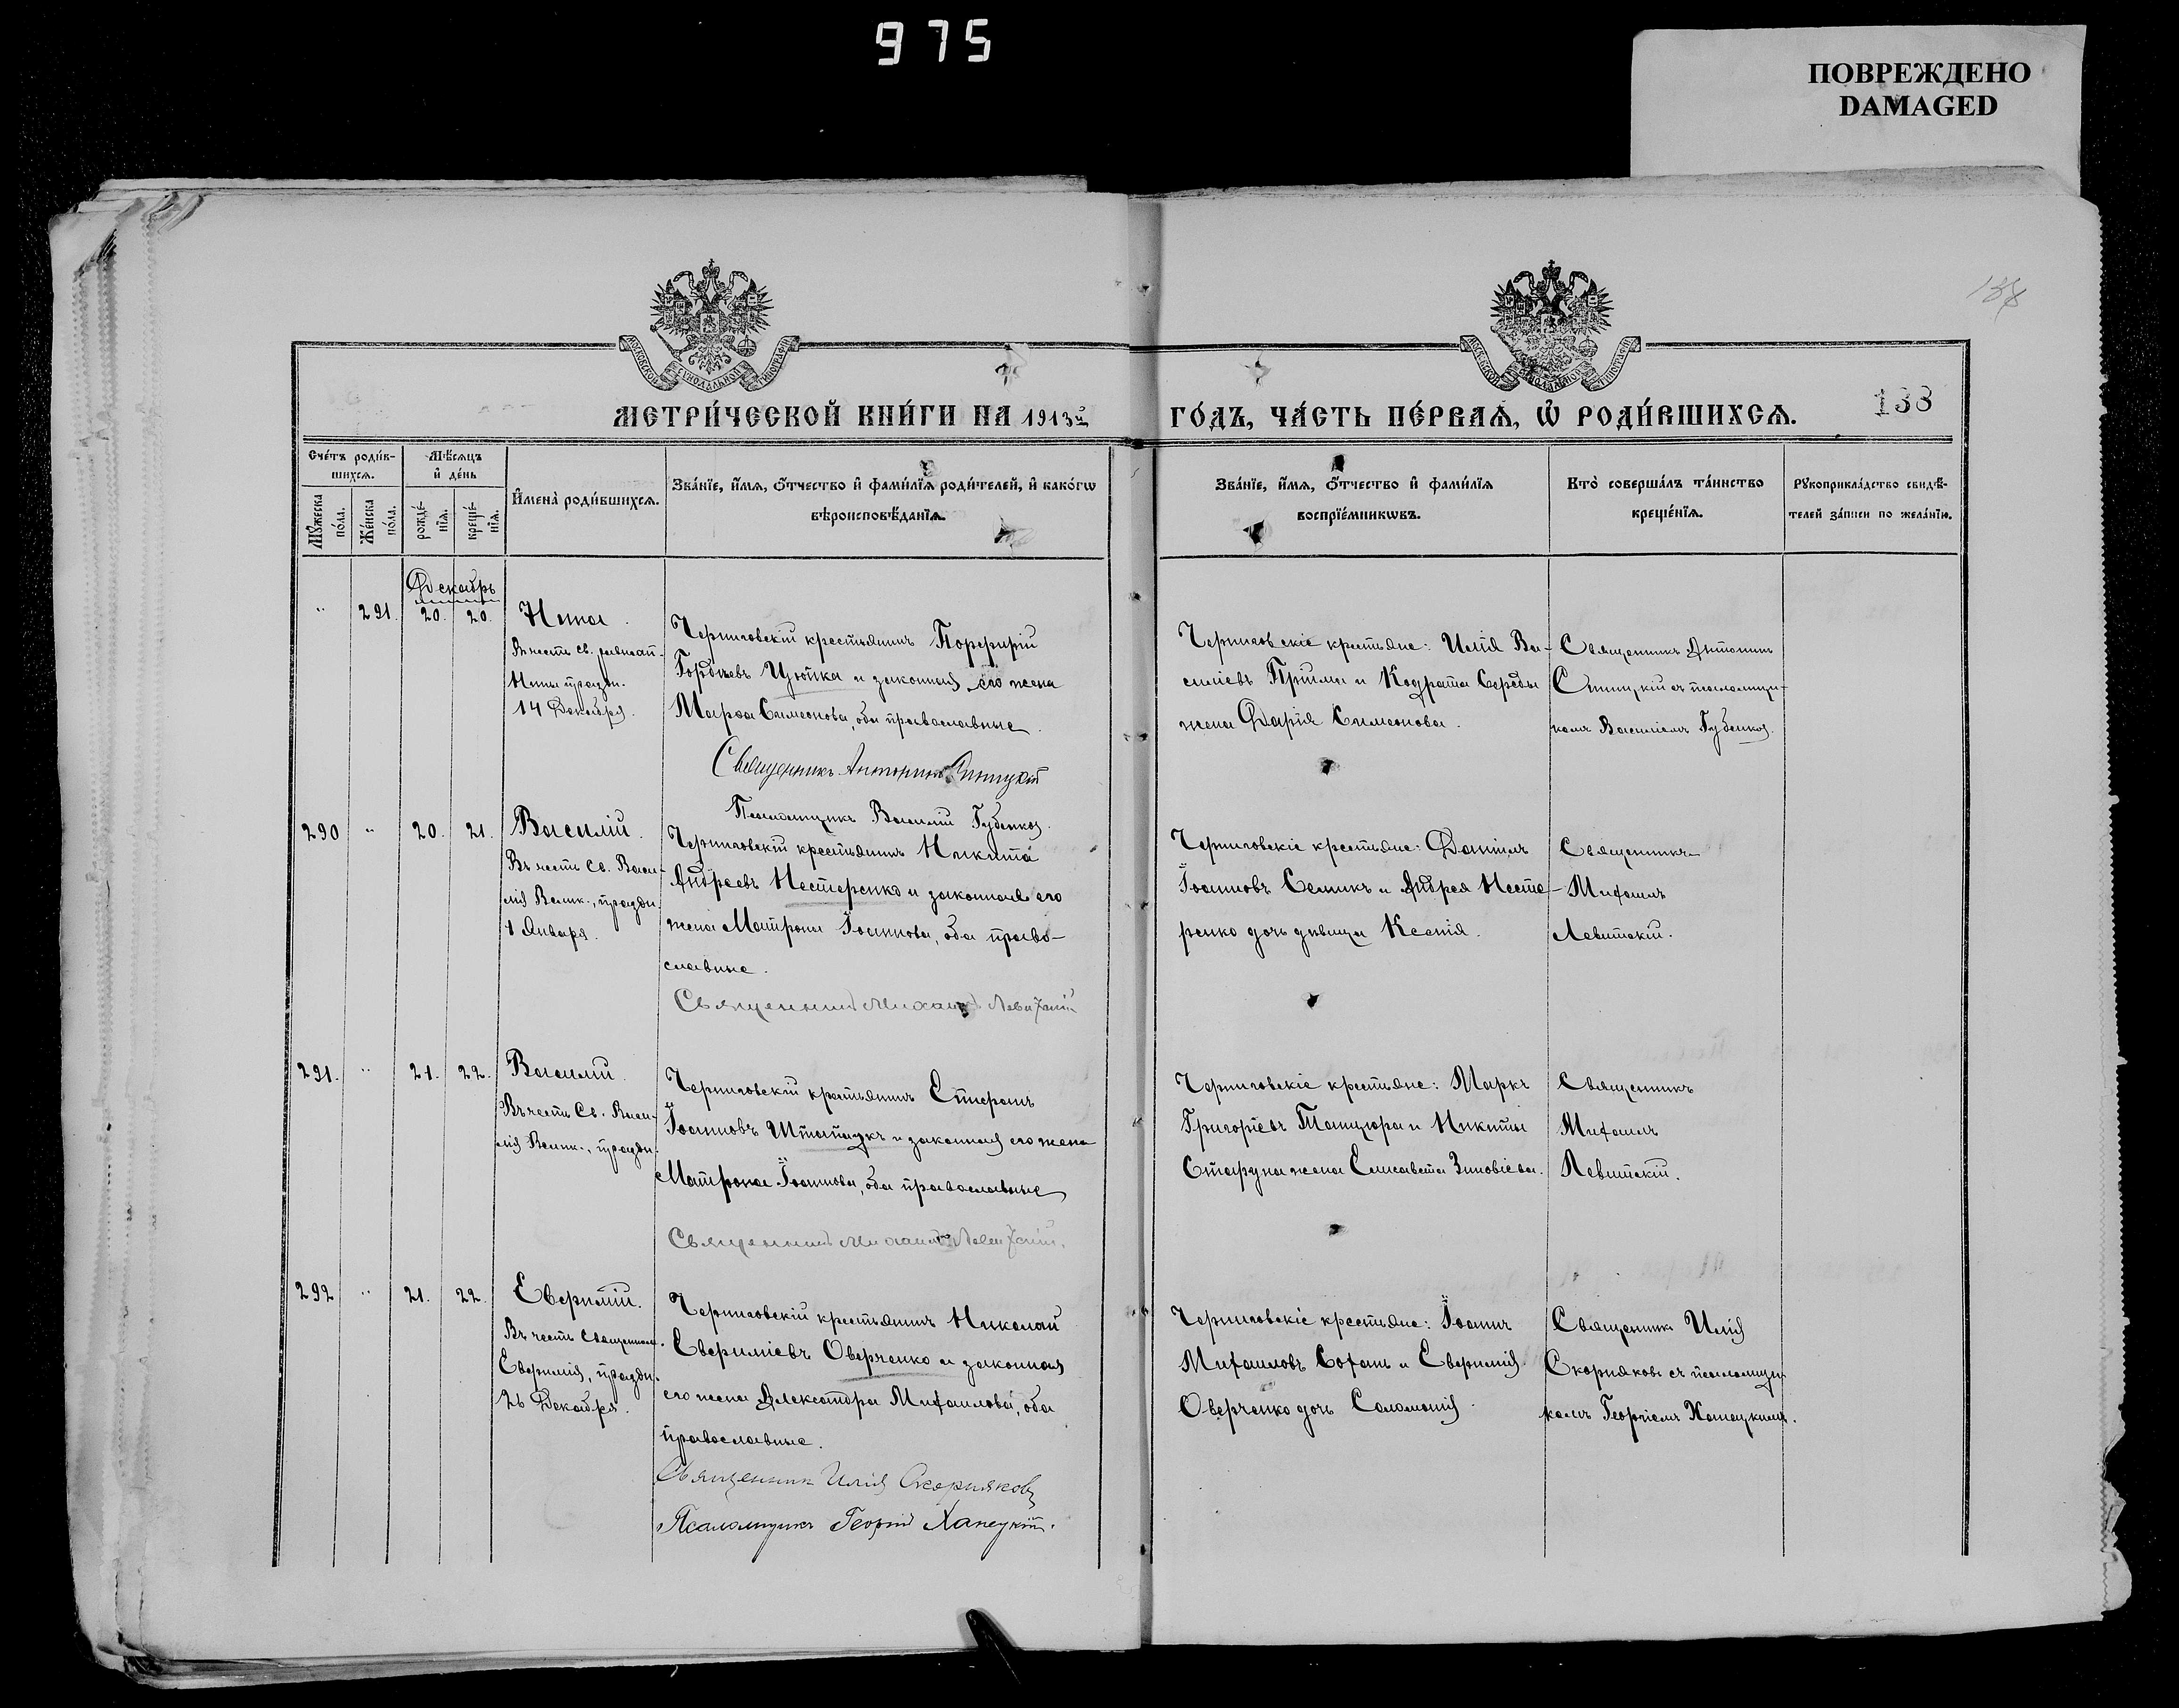 975
ПОВРЕЖДЕНО
DAMAGED
138
МОСКОВСКОЙ СѴНОДАЛЬНОЙ ТИПОГРАФІИ
МОСКОВСКОЙ СѴНОДАЛЬНОЙ ТИПОГРАФІИ
МЕТРИ́ЧЕСКОЙ КНИ́ГИ НА 1913й
ГО́ДЪ, ЧА́СТЬ ПЕ́РВАѦ, Ѡ҆ РОДИ́ВШИХСѦ.
138
Сче́тъ роди́в-
шихсѧ.
Мѣ́сѧцъ
и҆ де́нь
Мꙋ́жеска
по́ла.
Же́нска
по́ла.
рожде́-
нїѧ.
креще́-
нїѧ.
И҆мена̀ роди́вшихсѧ.
Зва́нїе, и҆́мѧ, ѻ҆́тчество и҆ фами́лїѧ роди́телей, и҆ како́гѡ
вѣроисповѣ́данїѧ.
Зва́нїе, и҆́мѧ, ѻ҆́тчество и҆ фами́лїѧ
воспрїе́мникѡвъ.
Кто̀ соверша́лъ та́инство
креще́нїѧ.
Рꙋкоприкла́дство свидѣ́-
телей за́писи по жела́нїю.
Декабрь
" 291. 20. 20. Нина.
Въ честь св. равноап.
Нины праздн.
14 Декабря.
Черниговскій крестьянинъ Порфирій
Гордѣевъ Цюпка и законная его жена
Марѳа Симеонова, оба православные.
Священникъ Антонинъ Синицкій
Псаломщикъ Василій Губенко.
Черниговскіе крестьяне: Илія Ва-
силіевъ Прійма и Кодрата Середы
жена Дарія Симеонова.
Священникъ Антонинъ
Синицкій съ псаломщи-
комъ Василіемъ Губенко.
290 " 20. 21. Василій.
Въ честь св. Васи-
лія Велик., праздн.
1 Января.
Черниговскій крестьянинъ Никита
Андреевъ Нестеренко и законная его
жена Матрона Іоаннова, оба право-
славные.
Священникъ Михаилъ Левитскій
Черниговскіе крестьяне: Даніилъ
Іоанновъ Семикъ и Андрея Несте-
ренко дочь дѣвица Ксенія.
Священникъ
Михаилъ
Левитскій.
291. " 21. 22. Василій.
Въ честь Св. Васи-
лія Велик., праздн.
Черниговскій крестьянинъ Стефанъ
Іоанновъ и законная его жена
Матрона Іоаннова, оба православные
Священникъ Михаилъ Левитскій.
Черниговскіе крестьяне: Маркъ
Григоріевъ Танцюра и Никиты
жена Елисавета Зиновіева.
Священникъ
Михаилъ
Левитскій.
292 " 21. 22. Евфимій.
Въ честь Священном.
Евфимія, праздн.
26 Декабря.
Черниговскій крестьянинъ Николай
Евфиміевъ Оверченко и законная
его жена Александра Михаилова, оба
православные.
Священникъ Илія Скорняковъ
Псаломщикъ Георгій Ханецкій.
Черниговскіе крестьяне: Іоаннъ
Михаиловъ Сохань и Евфимія
Оверченко дочь Саломонія.
Священникъ Илія
Скорняковъ съ псаломщи-
комъ Георгіемъ Ханецкимъ.